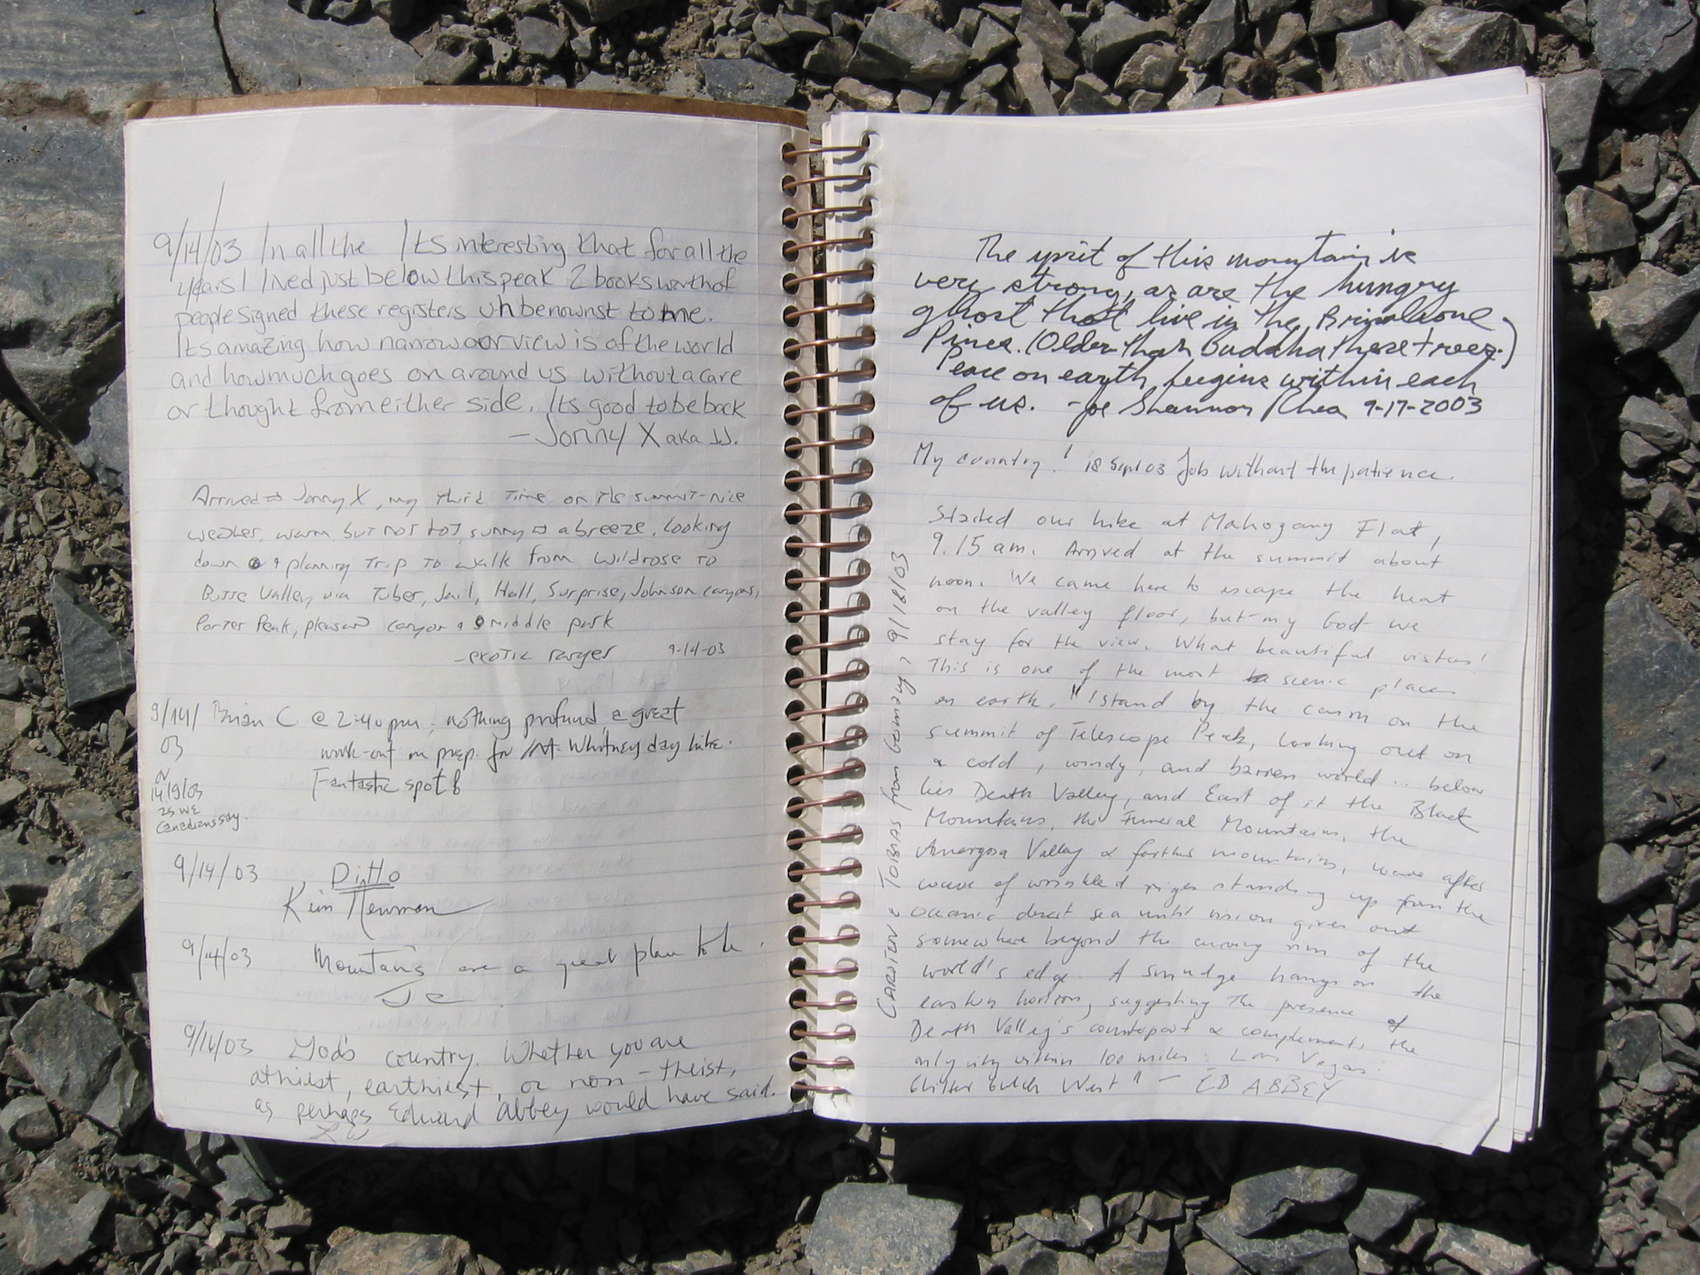 9/14/03 In all the Its interesting that for all the
years I lived just below this peak 2 books worth of
people signed these registers unbenownst to me.
Its amazing how narrow our view is of the world
and how much goes on around us without a care
or thought from either side. Its good to be back
- Jonny X aka JJ.
Arrived Jonny X, my third time on its summit - nice
weather, warm but not hot, sunny a breeze. Looking
down & planning trip to walk from Wildrose to
Butte Valley via Tuber, Jail, Hall, Surprise, Johnson canyons,
Porter Peak, pleasant canyon & middle park
- exotic ranger 9-14-03
9/14/03 Brian C @ 2:40 pm; nothing profund a great
work-out in prep. for Mt. Whitney day hike.
Fantastic spot
14/9/03
as we
Canadians say.
9/14/03 Ditto
Kim Newman
9/14/03 Mountains are a great place to be.
JC
9/16/03 God's country. Whether you are
athiest, earthiest, or non-theist,
as perhaps Edward Abbey would have said.
The spirit of this mountain is
very strong, as are the hungry
ghost that live in the Brisalcone
Pines. (Older than Buddaha these trees.)
Peace on earth begins within each
of us. - Joe Shannon Rhea 9-17-2003
My country! 18 Sept 03 Job without the patience.
Started our hike at Mahogany Flat,
9.15 am. Arrived at the summit about
noon. We came here to escape the heat
on the valley floor, but my God we
stay for the view. What beautiful vistas!
This is one of the most scenic places
on earth. "I stand by the cairn on the
summit of Telescope Peak, looking out on
a cold, windy, and barren world... below
lies Death Valley, and East of it the Black
Mountains, the Funeral Mountains, the
Amargosa Valley & farther mountains, wave after
wave of wrinkled ridges standing up from the
oceanic desert sea until vision gives out
somewhere beyond the curving rim of the
world's edge. A smudge hangs on the
eastern horizon, suggesting the presence of
Death Valley's counterpart & complement, the
only city within 100 miles: Las Vegas:
Glitter Gulch West" - ED ABBEY
CARSTEN & TOBIAS from Germany, 9/18/03